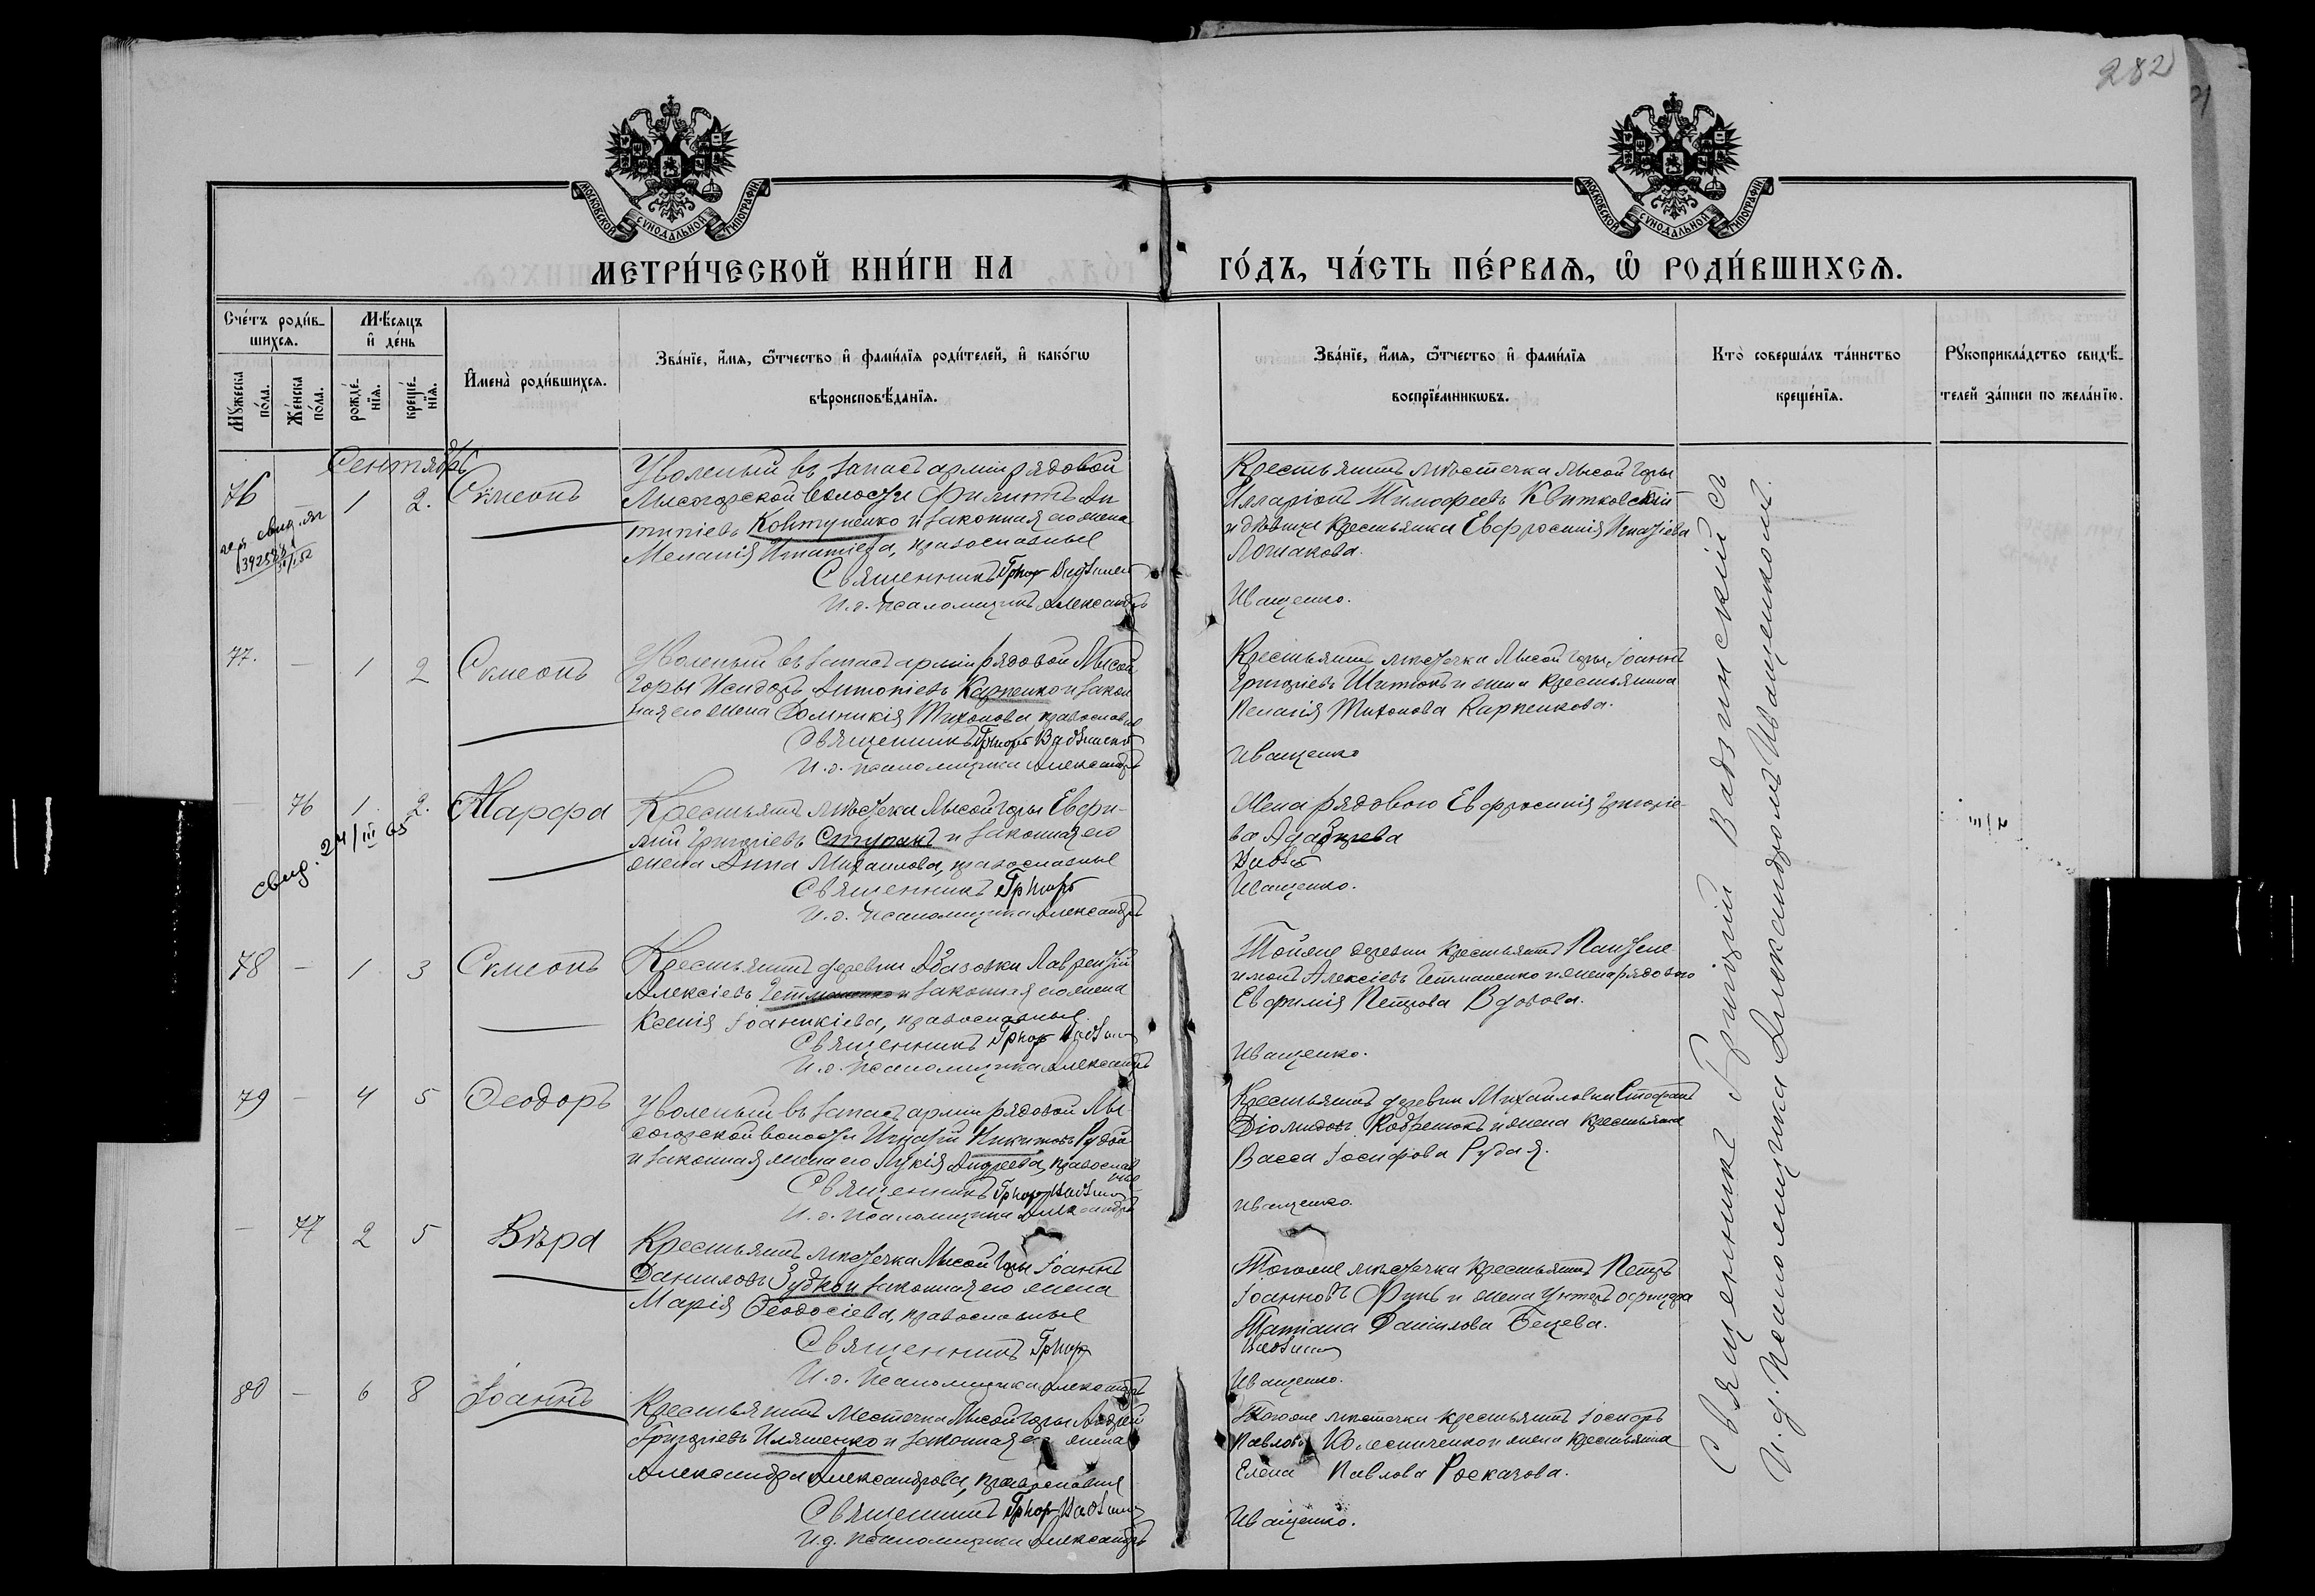 282
МОСКОВСКОЙ СѴНОДАЛЬНОЙ ТИПОГРАФІИ
МОСКОВСКОЙ СѴНОДАЛЬНОЙ ТИПОГРАФІИ
МЕТРИ́ЧЕСКОЙ КНИ́ГИ НА ГО́ДЪ, ЧА́СТЬ ПЕ́РВАѦ, Ѡ҆ РОДИ́ВШИХСѦ.
Сче́тъ роди́в-
шихсѧ.
Мѣ́сѧцъ
и҆ де́нь
Мꙋ́жеска
по́ла.
Же́нска
по́ла.
рожде́-
нїѧ.
креще́-
нїѧ.
И҆мена̀ роди́вшихсѧ.
Зва́нїе, и҆́мѧ, ѻ҆́тчество и҆ фами́лїѧ роди́телей, и҆ како́гѡ
вѣроисповѣ́данїѧ.
Зва́нїе, и҆́мѧ, ѻ҆́тчество и҆ фами́лїѧ
воспрїе́мникѡвъ.
Кто̀ соверша́лъ та́инство
креще́нїѧ.
Рꙋкоприкла́дство свидѣ́-
телей за́писи по жела́нїю.
Сентябрь
76 1 2. Сѵмеонъ
Уволеный въ запасъ арміи рядовой
Лысогорской волости Филиппъ Ан
типіевъ Ковтуненко и законная его жена
Меланія Игнатіева, православные
Священникъ Григор
И.д. псаломщика Александръ
Крестьянинъ мѣстечка Лысой Горы
Илларіонъ Тимофеевъ Квитковскій
и дѣвица крестьянка Евфросинія Игнатіева
Лошакова.
Иващенко.
77. — 1 2 Сѵмеонъ
Уволеный въ запасъ арміи рядовой Лысой
Горы Исидоръ Антоніевъ Карпенко и закон
ная его жена Домникія Тихонова, православные
Священникъ Григорій
И.д. псаломщика Александръ
Крестьянинъ мѣстечка Лысой Горы Іоаннъ
Григоріевъ и жена крестьянина
Пелагія Тихонова Карпенкова.
Иващенко
76 1. 2. Марфа
свид. 24/III 65
Крестьянинъ мѣстечка Лысой Горы Евфи-
мій Григоріевъ Ступакъ и законная его
жена Анна Михаилова, православные
Священникъ Григорій
И.д. псаломщика Александръ
Жена рядового Евфросинія Григоріе-
ва
Иващенко.
78 — 1 3 Сѵмеонъ
Крестьянинъ деревни Абазовки Лаврентій
Алексіевъ Гетманенко и законная его жена
Ксенія Іоанникіева, православные
Священникъ Григор
И.д. псаломщика Александръ
Тойже деревни крестьянинъ Пантеле
имонъ Алексіевъ Гетманенко и жена рядового
Евфимія Петрова Вдовова.
Иващенко.
79 — 4 5 Ѳеодоръ
Уволеный въ запасъ арміи рядовой Лы-
согорской волости Игнатій Никитовъ Рудой
и законная жена его Лукія Андреева, православ
ные
Священникъ Григор
И.д. псаломщика Александръ
Крестьянинъ деревни Михайловки Стефанъ
Діомидовъ и жена крестьянина
Васса Іосифова Рудая.
Иващенко.
— 77 2 5 Вѣра
Крестьянинъ мѣстечка Лысой Горы Іоаннъ
Даниловъ Зудко и законная его жена
Марія Ѳеодосіева, православные
Священникъ Григор
И.д. псаломщика Александръ
Тогоже мѣстечка крестьянинъ Петръ
Іоанновъ и жена унтеръ офицера
Татіана Даніилова
Иващенко.
80 — 6 8 Іоаннъ
Крестьянинъ местечка Лысой Горы Андрей
Григоріевъ Иляшенко и законная его жена
Александра Александрова, православные
Священникъ Григор
И.д. псаломщика Александръ
Тогоже мѣстечка крестьянинъ Іосифъ
Павловъ Колесниченко и жена крестьянина
Елена Павлова Роскачова.
Иващенко.
Священникъ Григорій Вадзинскій съ
И.д. Псаломщика Александромъ Иващенкомъ.